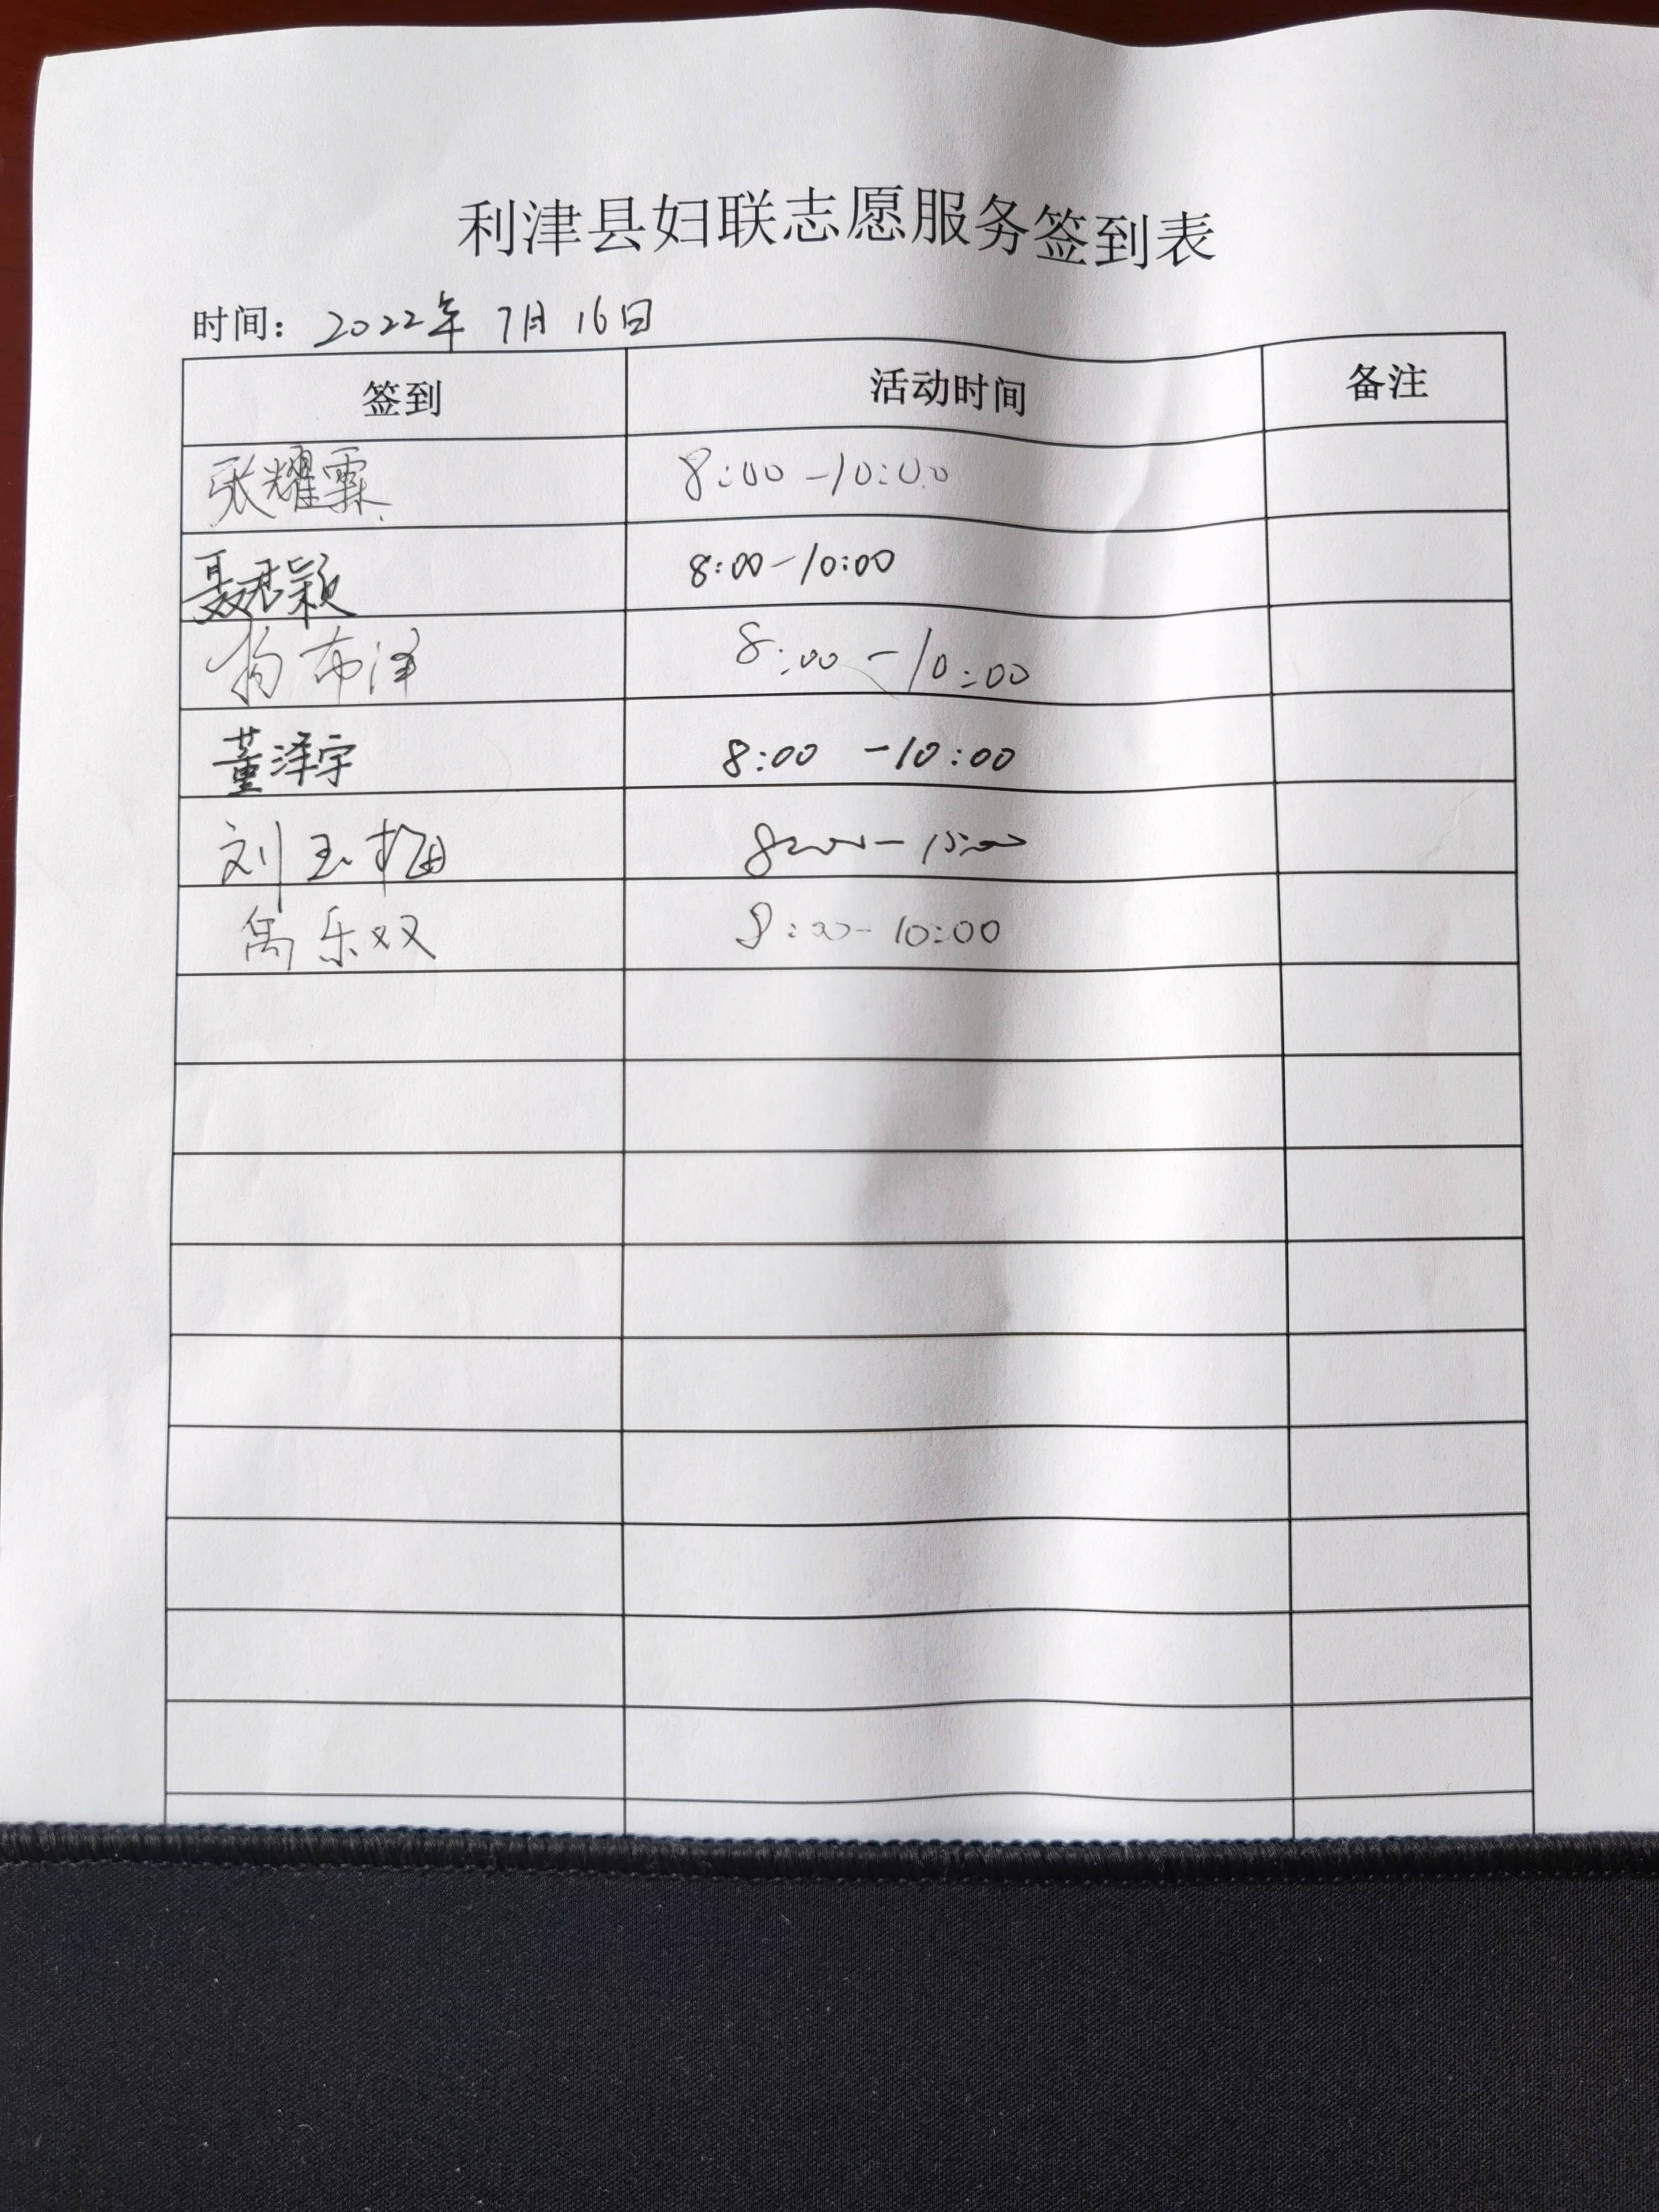 利津县妇联志愿服务签到表
时间：2022年 7月 16日
签到 活动时间 备注
张耀霖 8:00-10:00
聂君颖 8:00-10:00
杨布泽 8:00-10:00
董泽宇 8:00-10:00
刘玉梅 8:00-
乐双 8:00-10:00